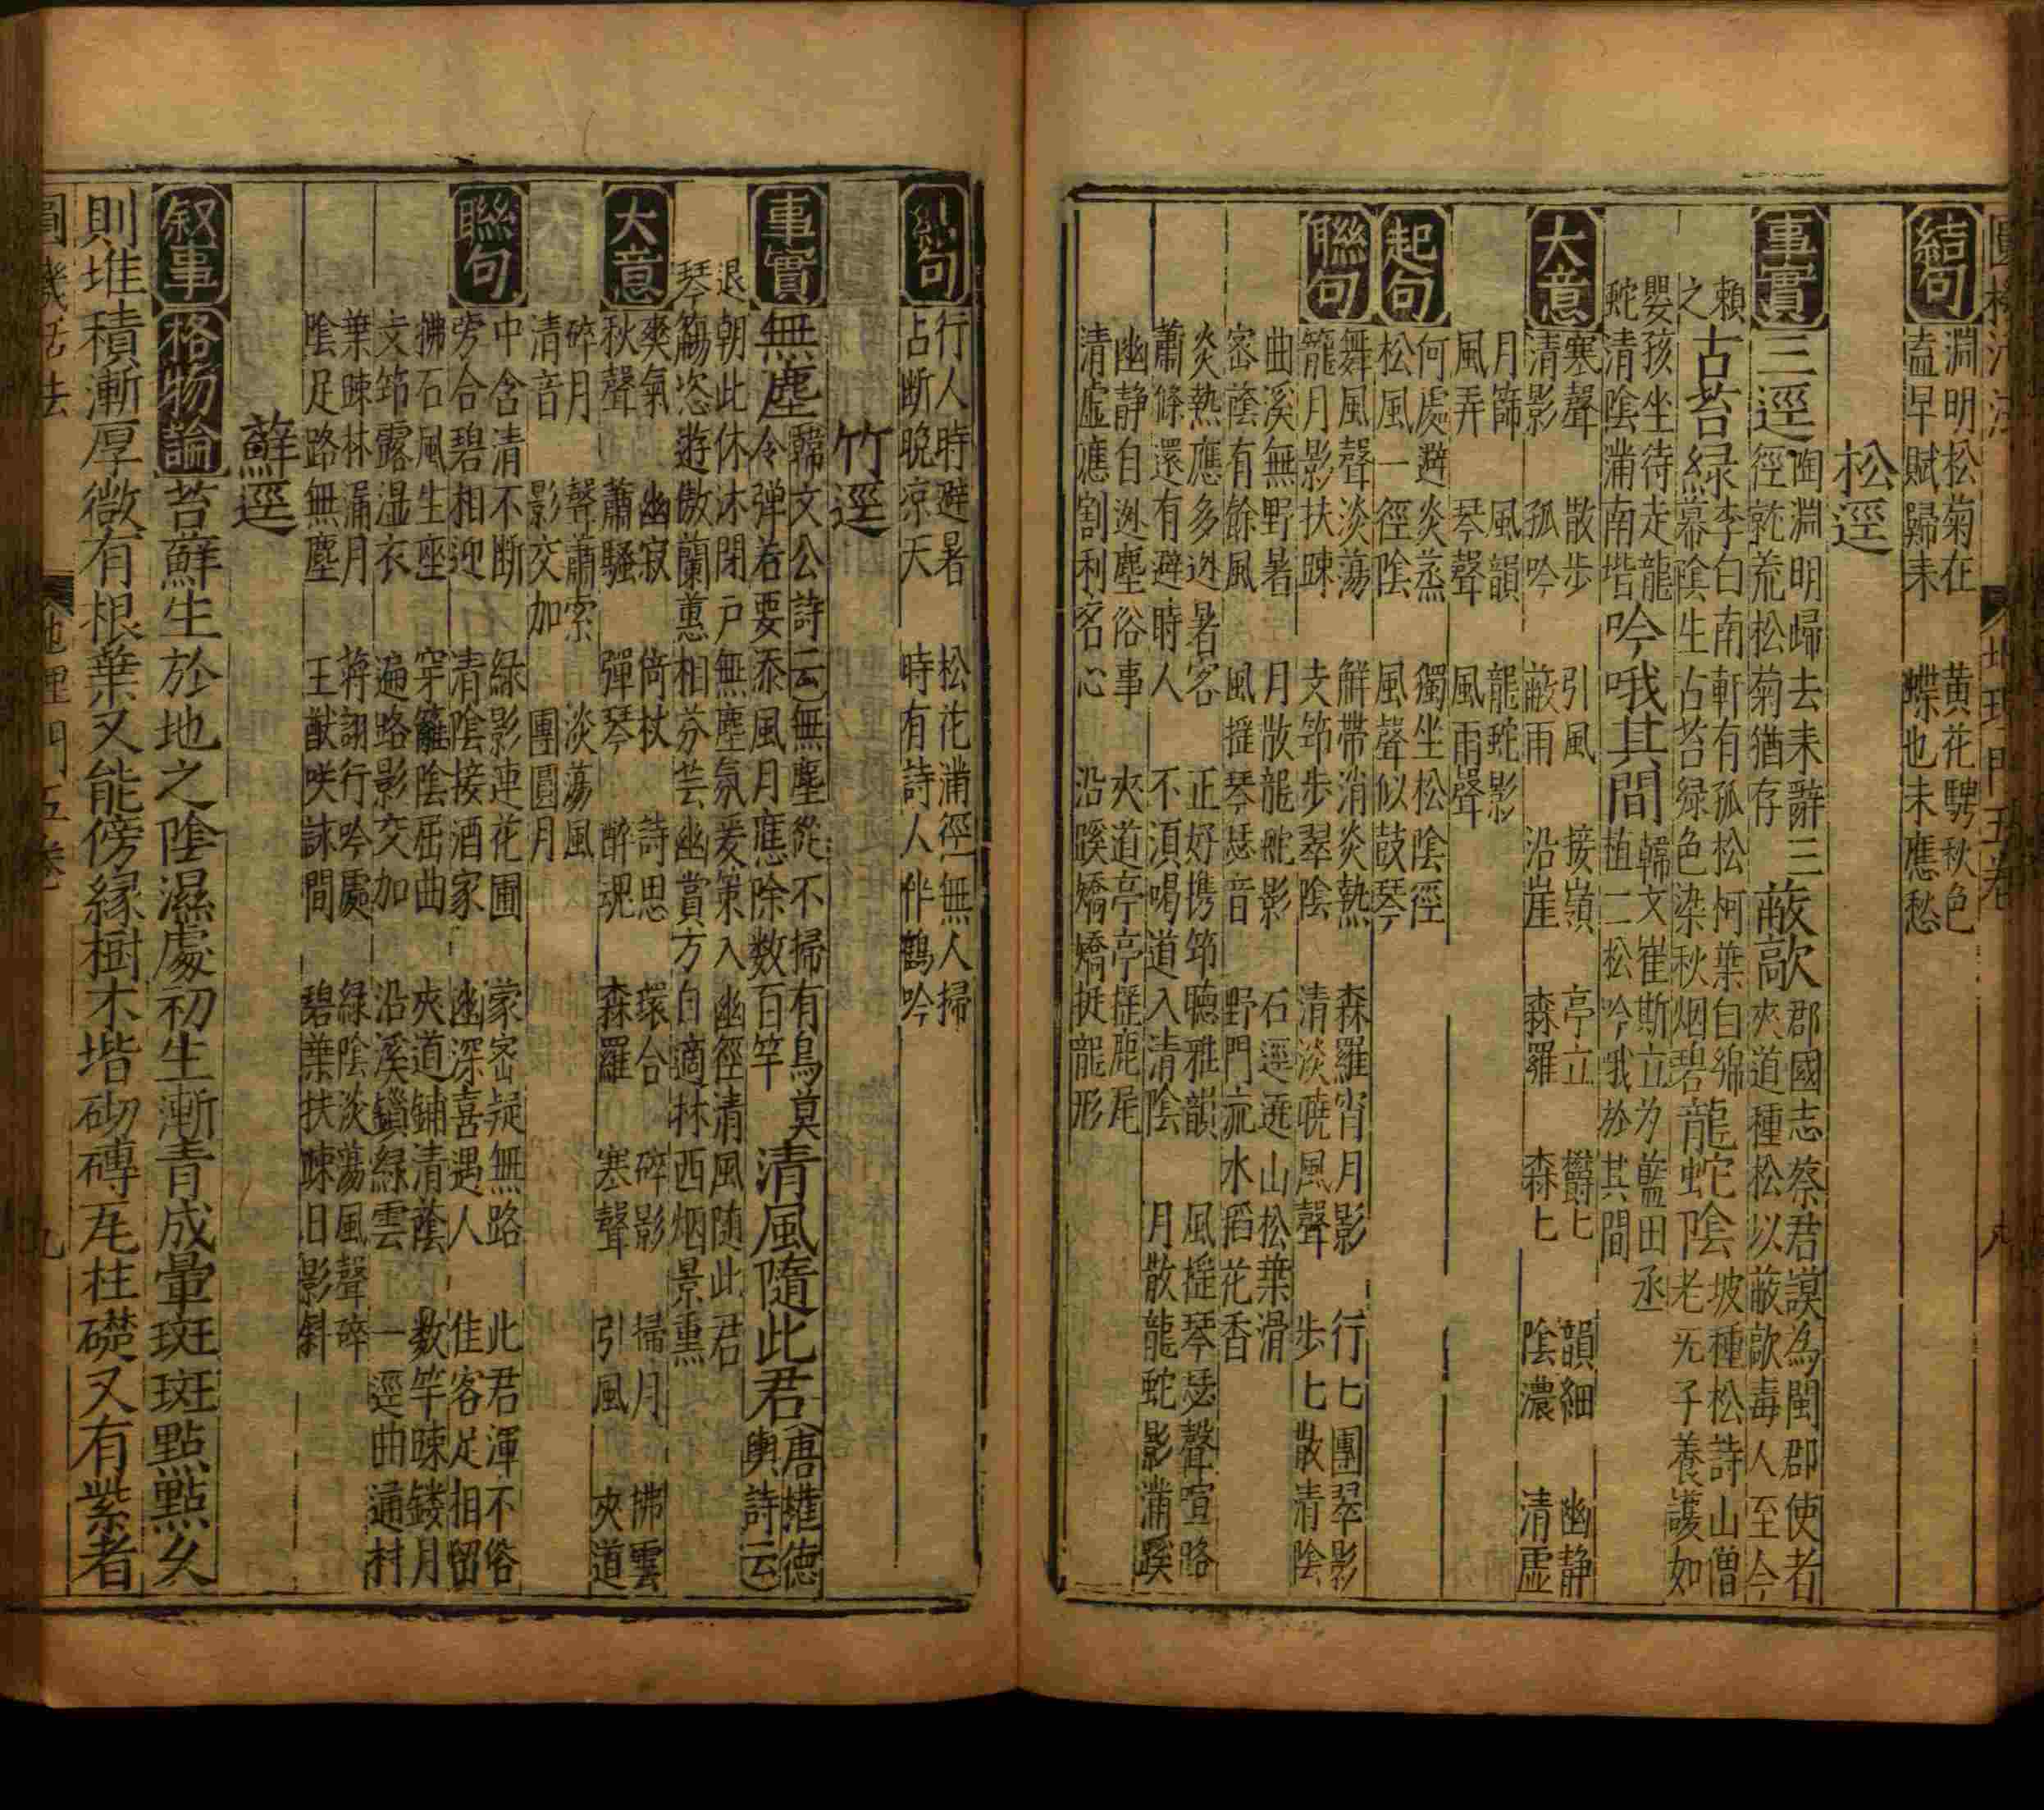 圓機活法 地理門五卷 九
結句 淵明松菊在 黄花騁秋色
盍早賦歸来 蝶也未應愁
松逕
事實 三逕 陶淵明歸去来辭三
徑乾荒松菊猶存 蔽歊 郡國志蔡君謨為閩郡使者
夾道種松以蔽歊毒人至今
賴
之 古苔緑 李白南軒有孤松柯葉自綿
幕陰生古苔緑色染秋烟碧 龍蛇陰 坡種松詩山僧
老无子養護如
嬰孩坐待走龍
蛇清陰滿南堦 吟哦其間 韓文崔斯立为藍田丞
植二松吟哦於其間
大意 寒聲 散步 引風 接嶺 亭立 欝匕 韻細 幽静
清影 孤吟 蔽雨 沿崖 森羅 森匕 陰濃 清虚
月篩 風韻 龍蛇影
風弄 琴聲 風雨聲
起句 何處避炎蒸 獨坐松陰徑
松風一徑陰 風聲似鼓琴
聯句 舞風聲淡蕩 解帶消炎熱 森羅宵月影 行匕團翠影
籠月影扶踈 支筇步翠陰 清淡曉風聲 步匕散清陰
曲溪無野暑 月散龍蛇影 石逕遥山松葉滑
宻蔭有餘風 風揺琴瑟音 野門亢水稻花香
炎熱應多迯暑客 正好携筇聴雅韻 風揺琴瑟聲喧路
蕭條還有避時人 不須喝道入清陰 月散龍蛇影滿蹊
幽静自迯塵俗事 夾道亭亭揺鹿尾
清虚應割利名心 沿蹊矯矯挺龍形
結句 行人時避暑 松花滿徑無人掃
占断晩凉天 時有詩人伴鶴吟
竹逕
事實 無塵 韓文公詩云無塵從不掃有鳥莫
令弹若要添風月應除数百竿 清風隨此君 唐權德
輿詩云
退朝此休沐閉户無塵氛爰策入幽徑清風随此君
琴觴恣遊傲蘭蕙相芬芸幽賞方自適林西烟景熏
大意 爽氣 幽寂 倚杖 詩思 環合 碎影 掃月 拂雲
秋聲 蕭騷 彈琴 醉魂 森羅 寒聲 引風 夾道
碎月 聲蕭索 淡蕩風
清音 影交加 團圓月
聯句 中含清不断 緑影連花圃 蒙宻疑無路 此君渾不俗
旁合碧相迎 清陰接酒家 幽深喜遇人 佳客足相留
拂石風生座 穿籬陰屈曲 夾道鋪清蔭 数竿踈鏤月
支筇露湿衣 遍路影交加 沿溪鎖緑雲 一逕曲通村
葉踈林漏月 蒋詡行吟處 緑陰淡蕩風聲碎
陰足路無塵 王猷咲詠間 碧葉扶踈日影斜
蘚逕
叙事 格物論 苔蘚生於地之陰濕處初生漸青成暈斑斑點點久
則堆積漸厚微有根葉又能傍緣樹木堦砌磚瓦柱礎又有紫者
圓機活法 地理門五卷 九